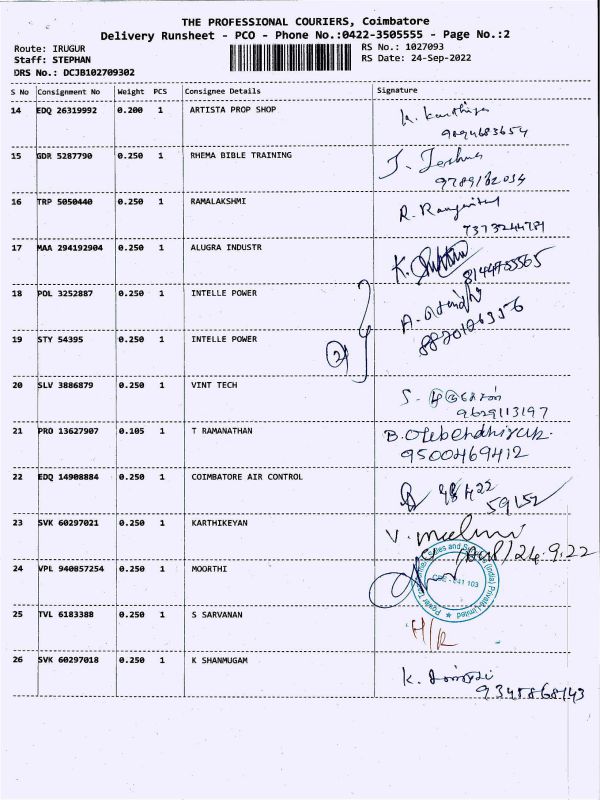 THE PROFESSIONAL COURIERS, Coimbatore
Delivery Runsheet - PCO - Phone No.:0422-3505555 - Page No.:2
Route: IRUGUR RS No.: 1027093
Staff: STEPHAN RS Date: 24-Sep-2022
DRS No.: DCJB102709302
S No Consignment No Weight PCS Consignee Details Signature
14 EDQ 26319992 0.200 1 ARTISTA PROP SHOP
9094683654
15 GDR 5287790 0.250 1 RHEMA BIBLE TRAINING J. Joshua
9789182034
16 TRP 5050440 0.250 1 RAMALAKSHMI R.
7373244781
17 MAA 294192904 0.250 1 ALUGRA INDUSTR K.
18 POL 3252887 0.250 1 INTELLE POWER A.
8870106356
19 STY 54395 0.250 1 INTELLE POWER 2
20 SLV 3886879 0.250 1 VINT TECH S.
9629113197
21 PRO 13627907 0.105 1 T RAMANATHAN B.
9500469412
22 EDQ 14908884 0.250 1 COIMBATORE AIR CONTROL 98422
59152
23 SVK 60297021 0.250 1 KARTHIKEYAN V.
24.9.22
24 VPL 940857254 0.250 1 MOORTHI
Sales and (India) Private Limited
641 103
25 TVL 6183388 0.250 1 S SARVANAN H/R
26 SVK 60297018 0.250 1 K SHANMUGAM K.
9345868143